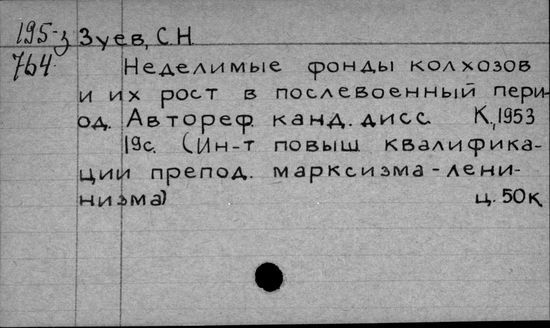 195-з Зуев, С.Н.
764. Неделимые фонды колхозов
и их рост в послевоенный пери-
од. Автореф. канд. дисс. К, 1953
19с. (Ин-т повыш квалифика-
ции препод. марксизма-лени-
низма) ц. 50к